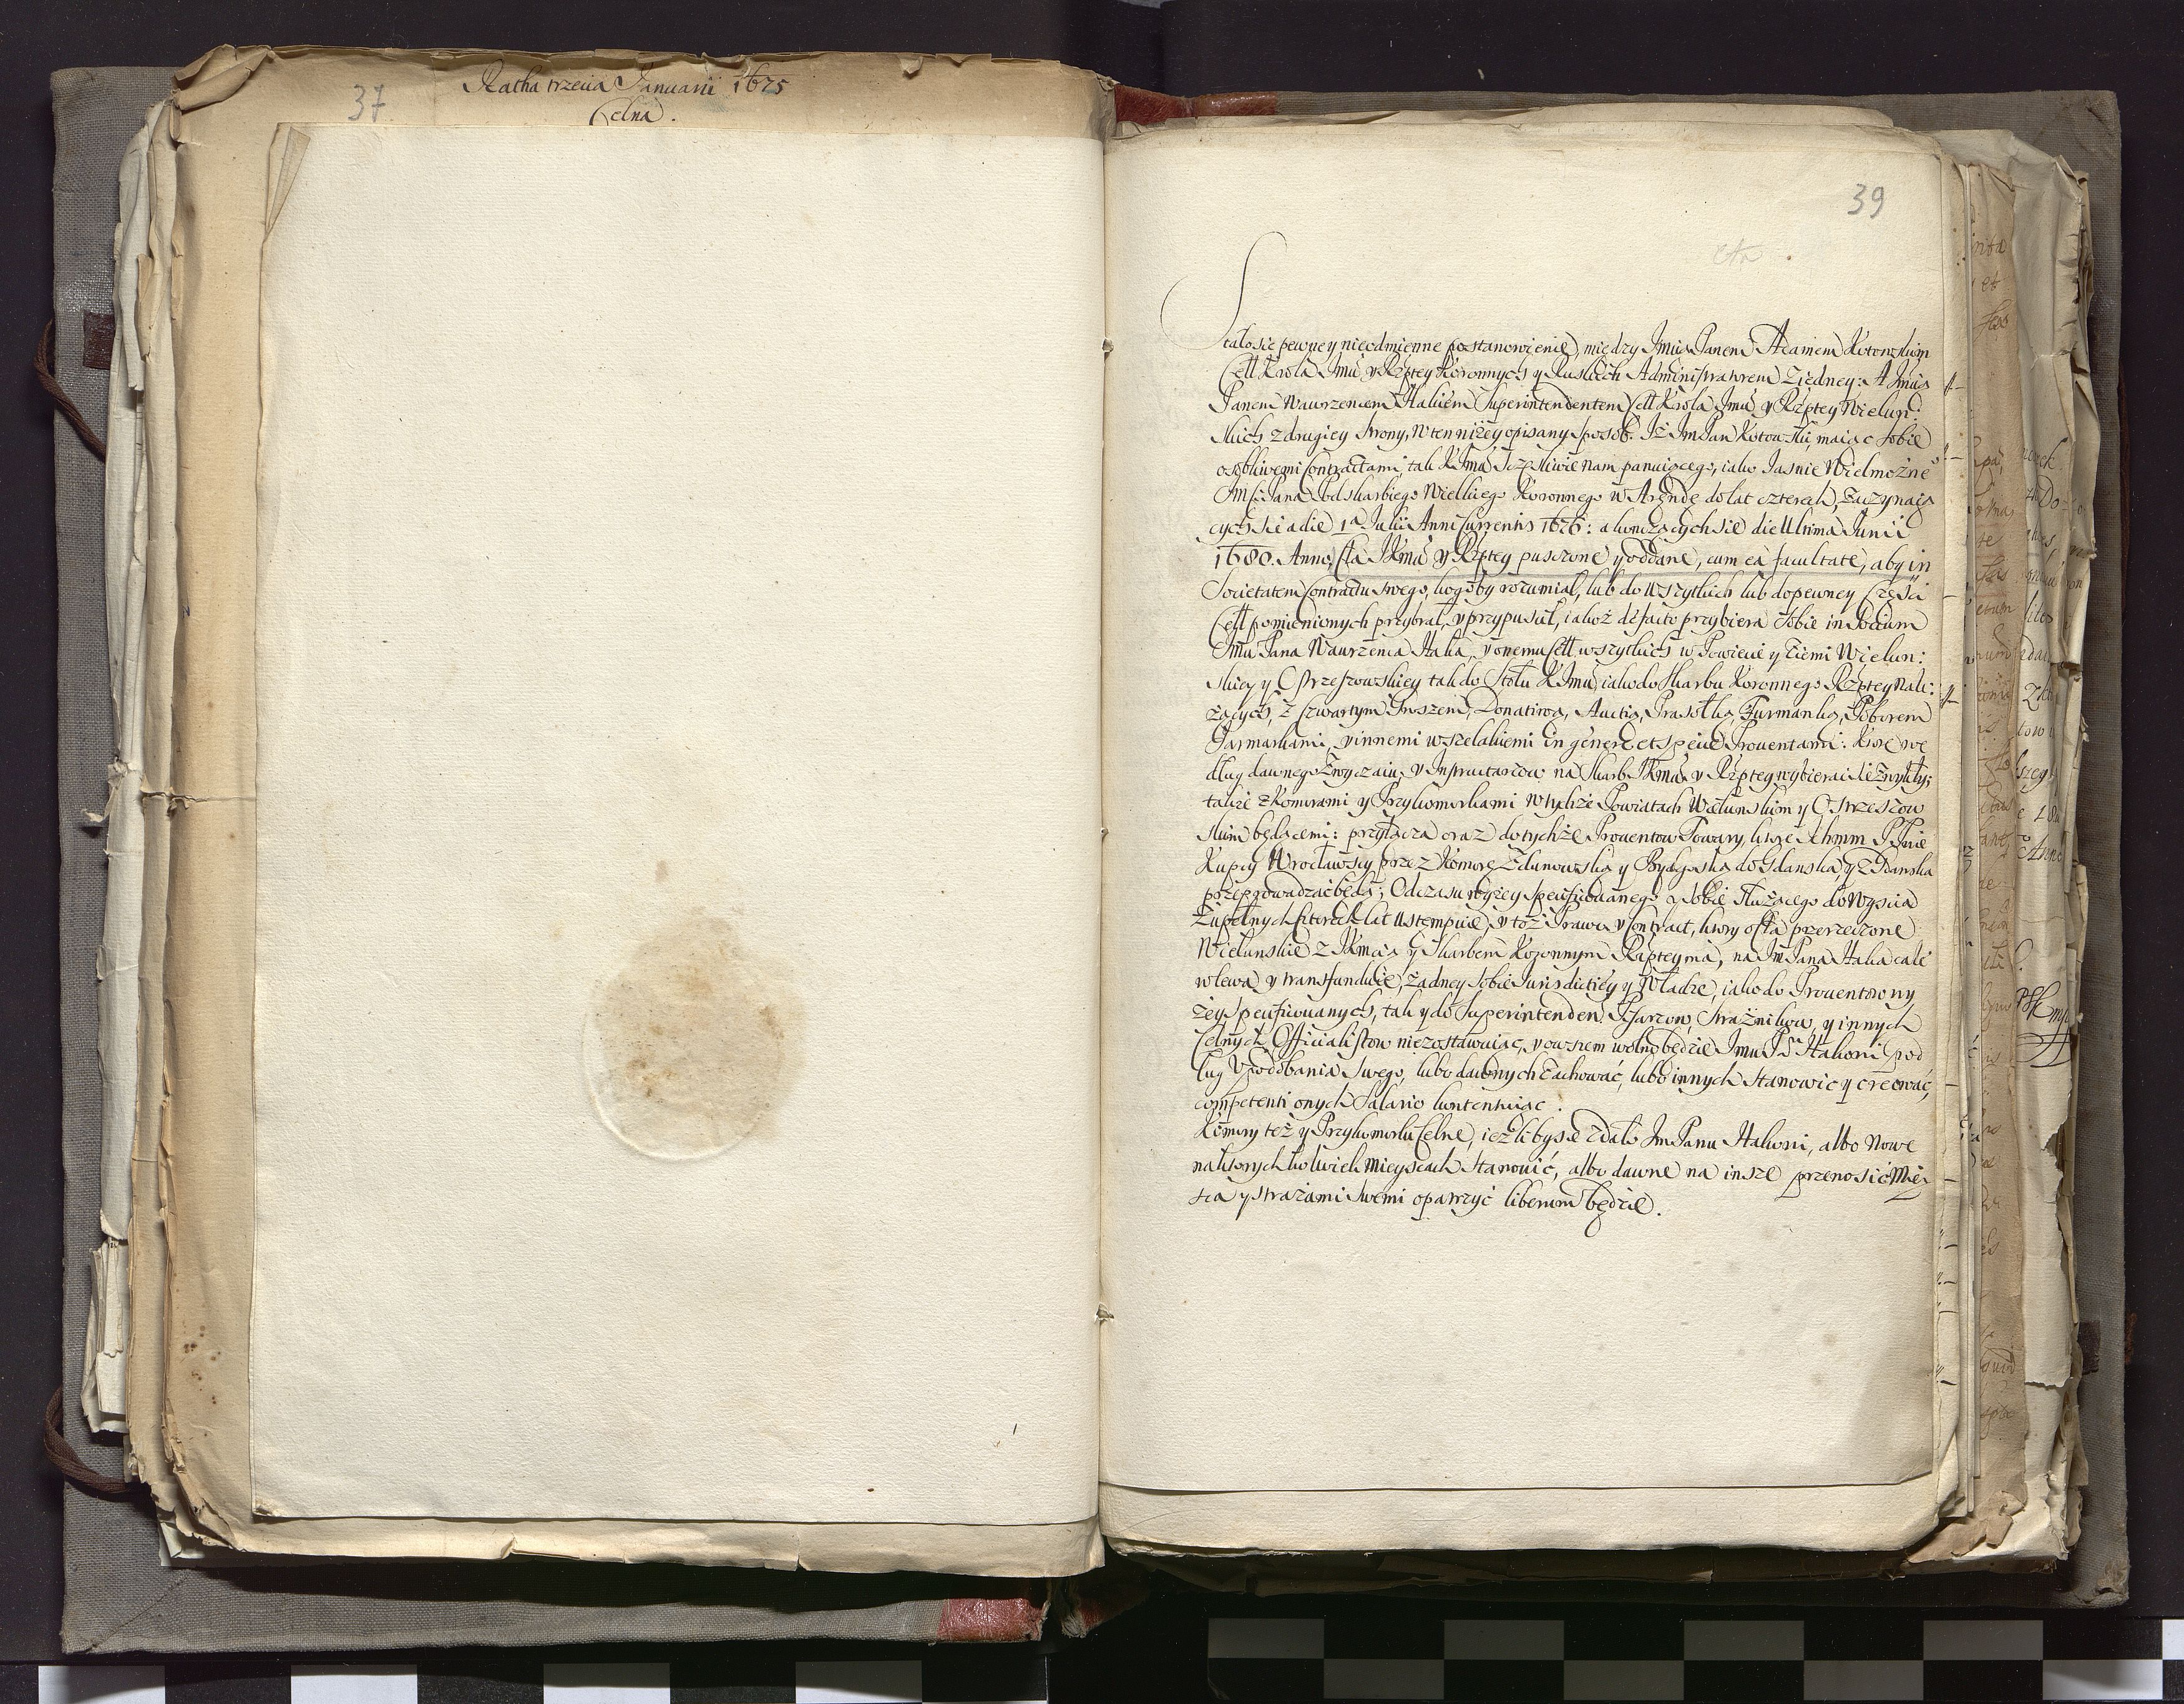 37
Ratha trzecia Januarii 1675
Celna.
39
Stało się pewne y nieodmienne postanowienie, między Jmcią Panem Adamem Kotowskim
Cełł Krola Jmci y Rzptey Koronnych y Ruskich Administratorem z iedney: A Jmcią
Panem Wawrzencem Italiem Superintendentem Cełł Krola Jmci y Rzptey Wielun:
skich z drugiey strony, w ten niżey opisany sposob. Iż Jm Pan Kotowski, maiąc sobie
osobliwemi Contractami, tak K Jmci szczesliwie nam panuiącego, iako Jasnie Wielmożne°
Jmści Pana Podskarbiego Wielkiego Koronnego w Arendę do lat czterech, zaczynaią
cych się a die 1ª Julii Anni Currentis 1676: a konczących się die Ultima Junii
1680. Anno, Cła J Kmci y Rzptey pusczone y oddane, cum ea facultate, aby in
Societatem Contractu swego, kogoby rozumiał, lub do wszytkich lub do pewney Części
Cełł pomienionych przybrał, y przypuscił, iakoż de facto przybiera sobie in Socium
Jmci Pana Wawrzenca Itala, y onemu Cełł wszytkich w Powiecie y Ziemi Wielun:
skiey y Ostrzeszowskiey tak do Stołu K Jmci iako do Skarbu Koronnego Rzptey Nale:
żących, z Czwartym Groszem, Donatiwą, Auctią, Prasołką, Furmanką, Poborem
Jarmarkami, y innemi wszelakiemi in genere et specie Prouentami: Ktore we
dług dawnego Zwyczaiu, y Instructarzow na Skarb J Kmci y Rzptey wybierać się zwykły;
także z Komorami y Przykomorkami w tychże Powiatach Wielunskim y Ostrzeszow
skim będącemi: przyłącza oraz do tychże Prouentow Towary, ktore Ichmm PPnie
Kupcy Wrocławscy przez Komorę Zdunowską y Bydgoską do Gdanska, y z Gdanska
przeprowadzać będą; Od czasu wyżey specificowanego y sobie służącego do wyscia
Zupełnych Czterech lat ustempuie, y toż Prawo y Contract, ktory o Cła przerzeczone
Wielunskie z J Kmcią y Skarbem Koronnym Rzptey ma, na Jm Pana Itala cale
wlewa y transfunduie, żadney sobie Jurisdictiey y Władze, iako do Prouentow wy
żey specificowanych, tak y do Superintenden. Pisarzow, Strażnikow, y innych
Celnych Officialistow nie zostawuiąc, y owszem wolno będzie Jmci Pu Italioni pod
ług Upodobania swego, lubo dawnych zachować, lubo innych stanowic y creować,
competenti onych Salario kontentuiąc.
Komory też y Przykomorki Celne, ieżeliby się zdało Jm Panu Italioni, albo Nowe
na ktorychkolwiek mieyscach stanowić, albo dawne na insze przenosić Miey
sca y strażami swemi opatrzyć liberum będzie.